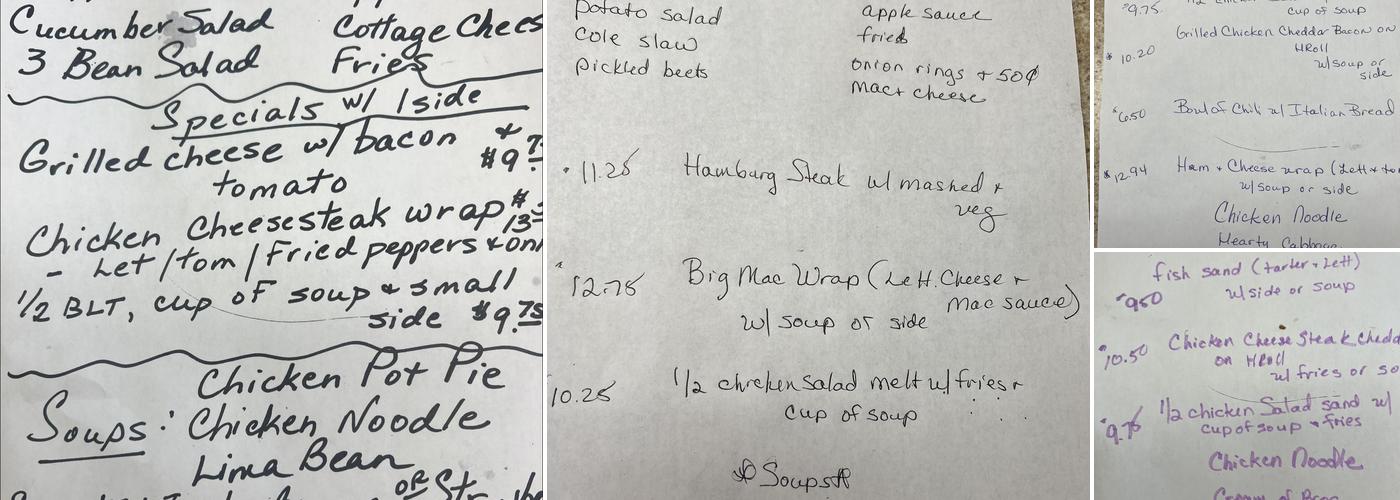 Cucumber Salad Cottage Chees
3 Bean Salad Fries
Specials w/ 1 side
Grilled cheese w/ bacon + $9.7
tomato
Chicken Cheesesteak wrap $13
- Let/tom/Fried peppers + on
1/2 BLT, cup of soup & small
side $9.75
Chicken Pot Pie
Soups: Chicken Noodle
Lima Bean
or
potato salad apple sauce
cole slaw fried
pickled beets onion rings + 50¢
mac + cheese
11.25 Hamburg Steak w/ mashed +
veg
12.75 Big Mac Wrap (Lett. Cheese +
Mac sauce)
w/ soup or side
10.25 1/2 chicken salad melt w/ fries +
cup of soup
Soups
$9.75 1/2
cup of soup
Grilled Chicken Cheddar Bacon on
$10.20 HRoll
w/ soup or
side
$6.50 Bowl of Chili w/ Italian Bread
$12.94 Ham + Cheese wrap (Lett + to
w/ soup or side
Chicken Noodle
Hearty Cabbage
fish sand (tarter + Lett)
$9.50 w/ side or soup
$10.50 Chicken Cheese Steak Chedd
on HRoll
w/ fries or so
1/2 chicken Salad sand w/
$9.75 cup of soup + fries
Chicken Noodle
Cream of